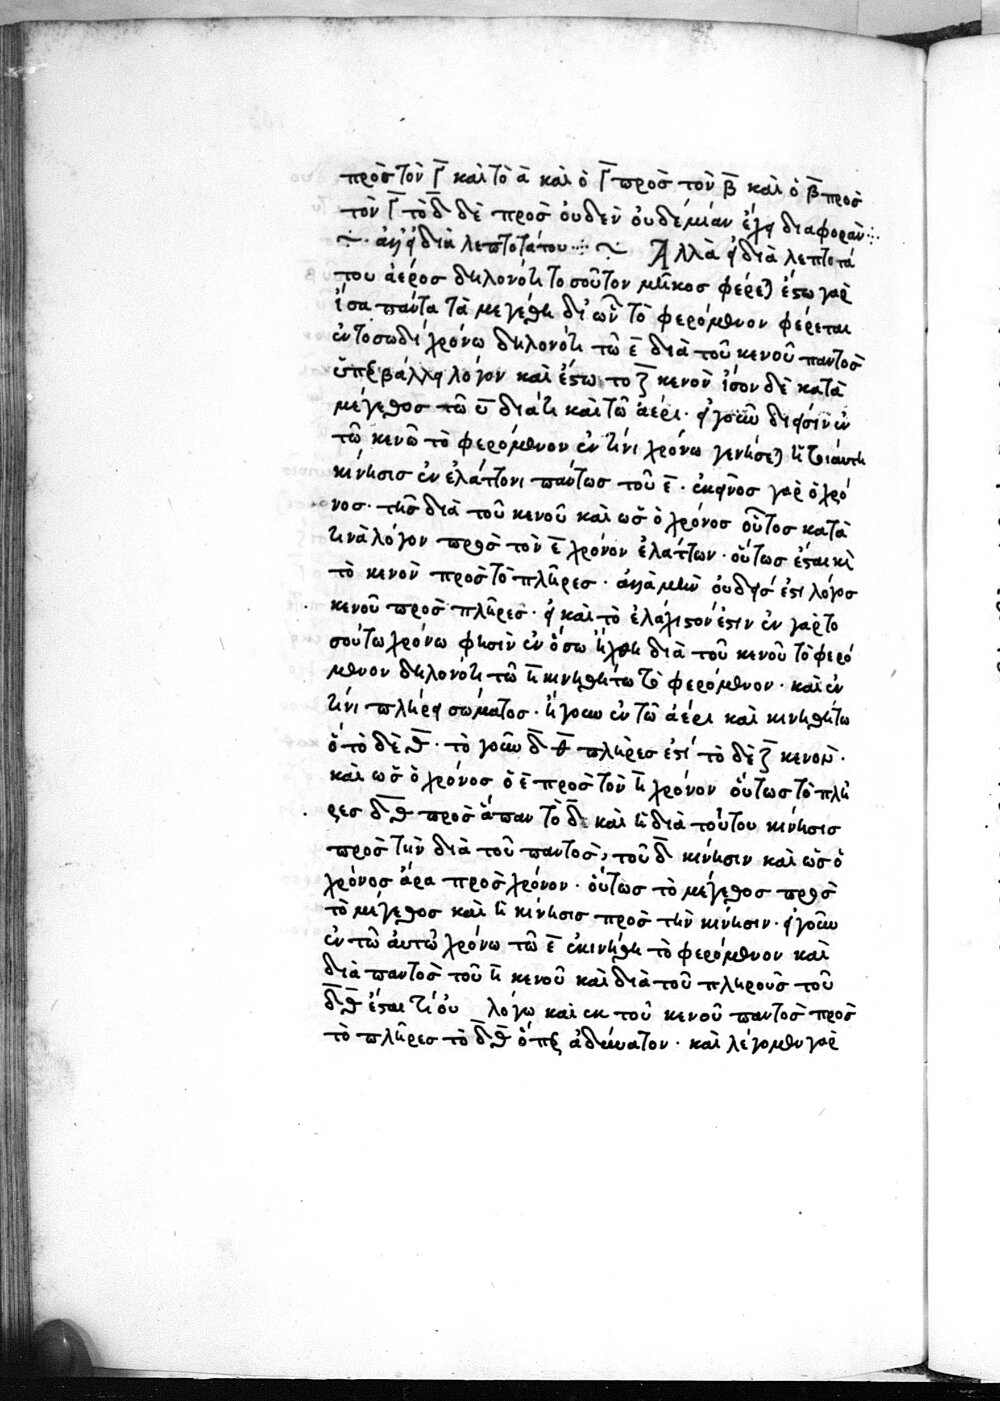 πρὸς τὸν Γ̅ καὶ τὸ α̅ καὶ ὁ Γ̅ πρὸς τὸν β̅ καὶ ὁ β̅ πρὸς
τὸν Γ̅ τὸ δ̅ δὲ πρὸς οὐδεν οὐδεμίαν ἔχει διαφορὰν
ἀλλ' εἰ διὰ λεπτοτάτου Ἀλλὰ εἰ διὰ λεπτοτά
του ἀέρος δηλονότι τοσοῦτον μῆκος φέρεται ἔστω γὰρ
ἴσα πάντα τὰ μεγέθη δι' ὧν τὸ φερόμενον φέρεται
ἐν τοσωδὶ χρόνω δηλονότι τῶ ε̅ διὰ τοῦ κενοῦ παντὸς
ὑπερβάλλει λόγον καὶ ἔστω το ζ̅ κενὸν ἴσον δὲ κατὰ
μέγεθος τῶ διάτι καὶ τῶ ἀέρι· εἰ γοῦν δίεισιν ἐν
τῶ κενῶ τὸ φερόμενον ἐν τίνι χρόνω γενήσεται ἡ τοιάυτη
κίνησις ἐν ἐλάττονι πάντως τοῦ ε̅ · ἐκεῖνος γαρ ὁ χρό
νος· τῆς διὰ τοῦ κενοῦ καὶ ὡς ὁ χρόνος οὗτος κατὰ
τινὰ λόγον πρὸς τὸν ε̅ χρόνον ἐλάττων· οὕτως ἔσται καὶ
τὸ κενὸν πρὸς τὸ πλῆρες· ἀλλὰ μὴν οὐδείς ἐστι λόγος
κενοῦ πρὸς πλῆρες· εἰ καὶ τὸ ἐλάχιστόν ἐστιν ἐν γὰρ το
σούτω χρόνω φησὶν ἐν ὅσω ἤχθη διὰ τοῦ κενοῦ τὸ φερό
μενον δηλονότι τῶ η̅ κινηθήτω τὸ φερόμενον· καὶ ἐν
τίνι πλήρει σώματος· ἤγουν ἐν τῶ ἀέρι καὶ κινηθήτω
ὅ τὸ δὲ θ̅ · τὸ γοῦν δ̅ θ̅ πλῆρες ἐστί τὸ δὲ ζ̅ κενον·
καὶ ὡς ὁ χρόνος ὁ ε̅ πρὸς τὸν η̅ χρόνον οὕτως τὸ πλῆ
ρες δ̅θ̅ πρὸς ἅπαν τὸ δ̅ καὶ ἡ διὰ τούτου κίνησις
πρὸς τὴν διὰ τοῦ παντὸς, τοῦ δ̅ κίνησιν καὶ ὡς ὁ
χρόνος ἄρα πρὸς χρόνον· οὕτως τὸ μέγεθος πρὸς
τὸ μέγεθος καὶ ἡ κίνησις πρὸς τὴν κίνησιν· εἰ γοῦν
ἐν τῶ ἀυτῶ χρόνω τῶ ε̅ ἐκινήθη τὸ φερόμενον καὶ
διὰ παντὸς τοῦ κενοῦ καὶ διὰ τοῦ πλήρους τοῦ
δ̅θ̅ ἔσται λόγω καὶ ἐκ τοῦ κενοῦ παντὸς πρὸς
τὸ πλῆρες τὸ δ̅θ̅ ὅπερ ἀδύνατον· καὶ λέγομεν γὰρ